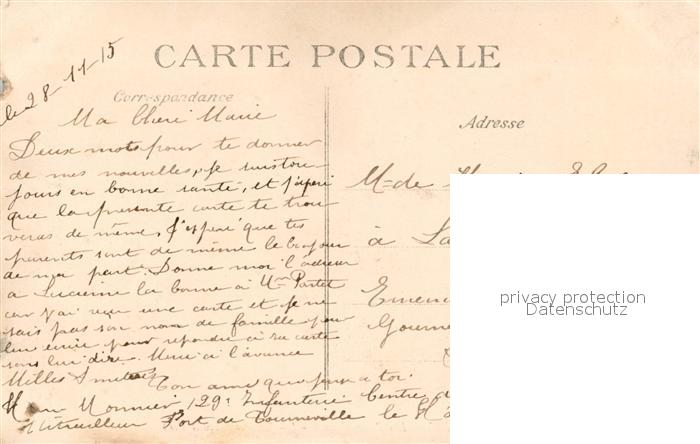 le 28-11-15
CARTE POSTALE
Correspondance
Adresse
Ma Cheri Marie
Deux mots pour te donner
de mes nouvelles, je suis tou-
jours en bonne santé, et j'èsperè
que la presente carte te trou
veras de même, j'èsperè que tes
parents sont de même le bonjour
de ma part. Donne moi l'adresse
a Lucienne la bonne a Mme
car j'ai reçu une carte et je ne
sais pas son nom de famille pour
lui ecrire pour repondre a sa carte
sans lui dire. Merci a l'avance
Milles
Ton ami qui pense a toi
Monnier 129e Infanterie Centre de
Mitrailleur Fort de Tourneville le
M= de
à La
Gourne
privacy protection
Datenschutz